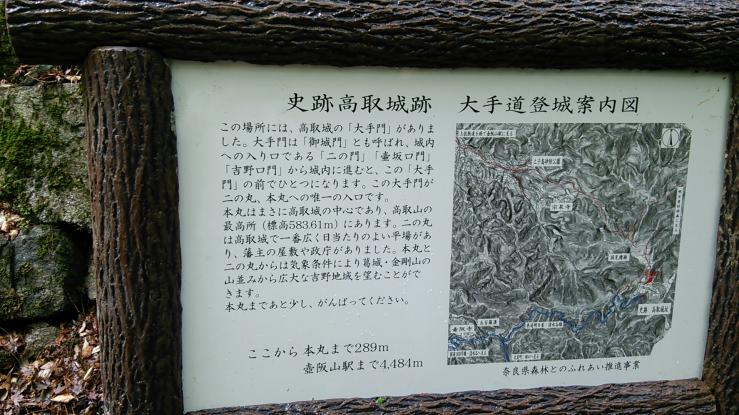 史跡高取城跡　大手道登城案内図
この場所には、高取城の「大手門」がありま
した。大手門は「御城門」とも呼ばれ、城内
への入り口である「二の門」「壷坂口門」
「吉野口門」から城内に進むと、この「大手
門」の前でひとつになります。この大手門が
二の丸、本丸への唯一の入口です。
本丸はまさに高取城の中心であり、高取山の
最高所（標高583.61m）にあります。二の丸
は高取城で一番広く日当たりのよい平場があ
り、藩主の屋敷や政庁がありました。本丸と
二の丸からは気象条件により葛城・金剛山の
山並みから広大な吉野地域を望むことがで
きます。
本丸まであと少し、がんばってください。
ここから 本丸まで289m
壺阪山駅まで4,484m
上子島砂防公園
宗泉寺
国見櫓跡
史跡　高取城址
壺阪寺
五百羅漢
奈良県森林とのふれあい推進事業